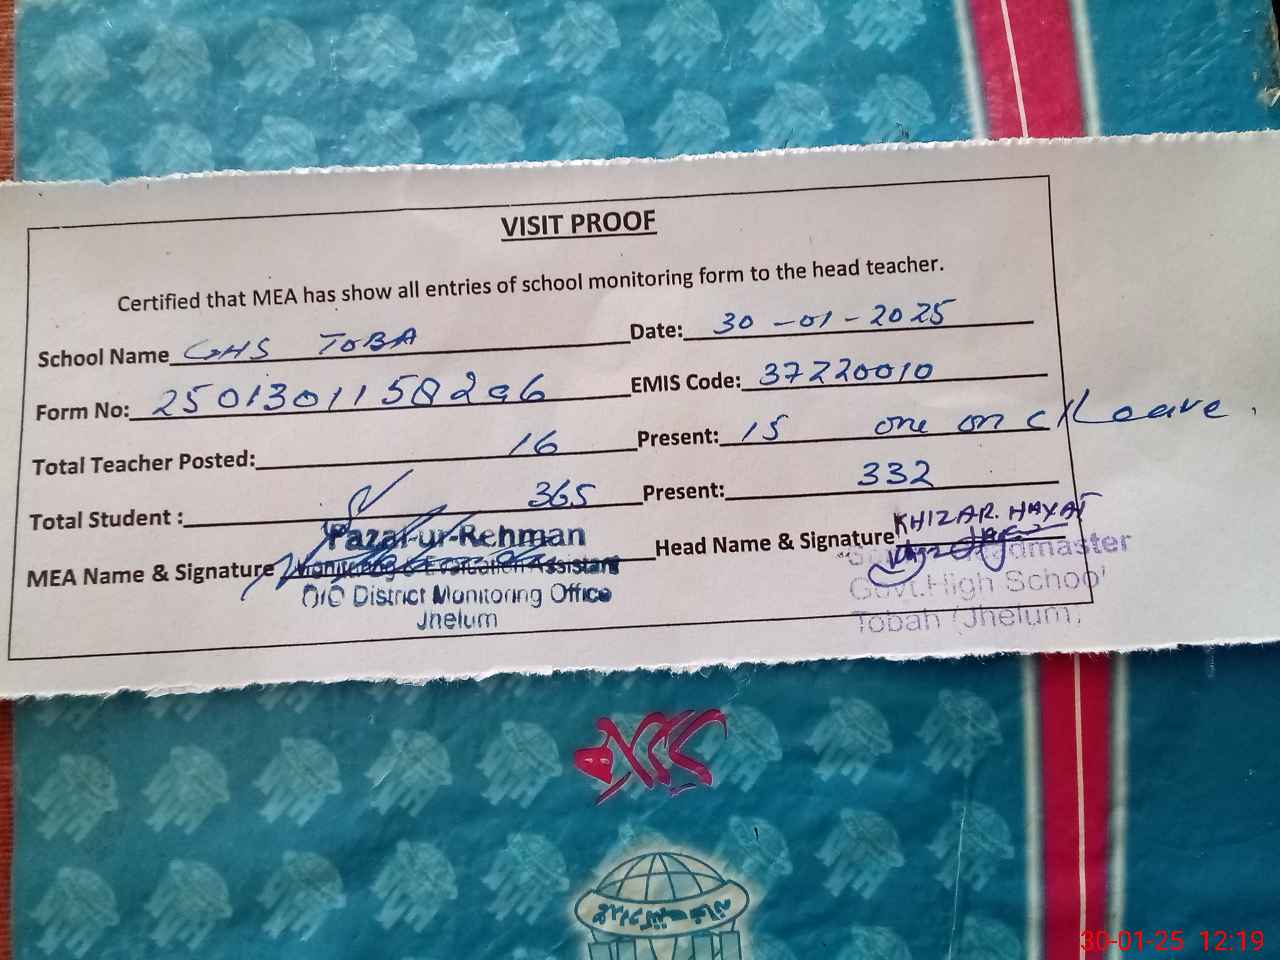 VISIT PROOF
Certified that MEA has show all entries of school monitoring form to the head teacher.
School Name GHS TOBA Date: 30-01-2025
Form No: EMIS Code: 37220010
Total Teacher Posted: 16 Present: 15 one on c/Leave.
Total Student : 365 Present: 332
MEA Name & Signature Head Name & Signature KHIZAR. HAYAT
Fazal-ur-Rehman
Monitoring & Evaluation Assistant
O/O District Monitoring Office
Jhelum
Headmaster
Govt.High School
Tobah (Jhelum)
30-01-25 12:19